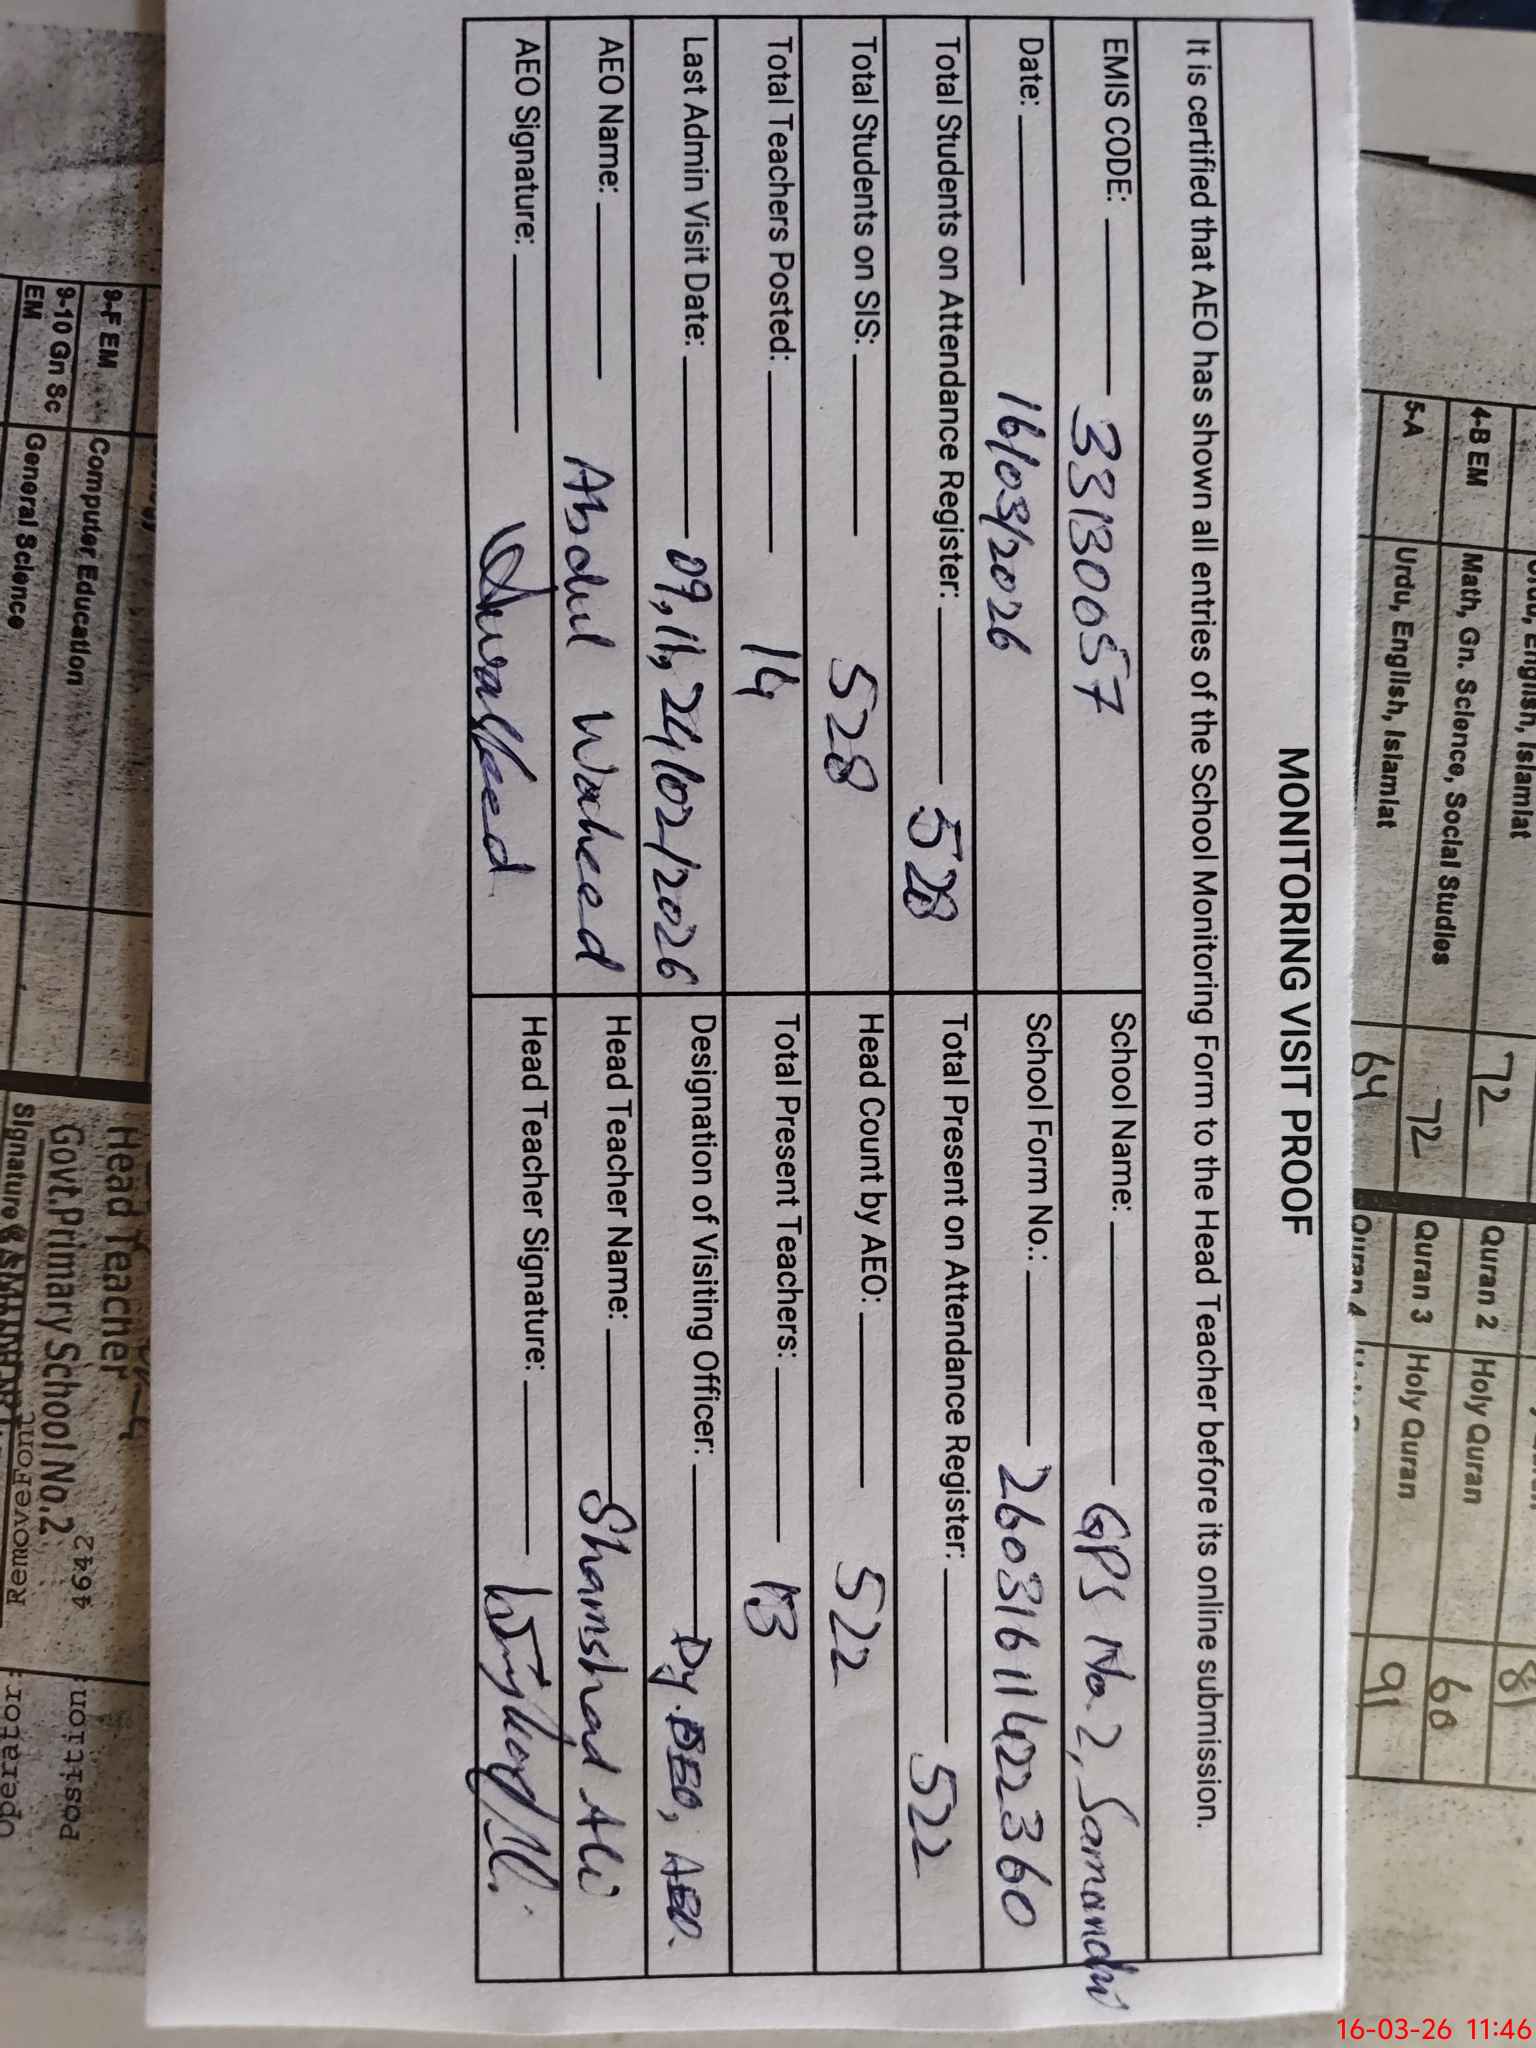 MONITORING VISIT PROOF
It is certified that AEO has shown all entries of the School Monitoring Form to the Head Teacher before its online submission.
EMIS CODE: 33130057
School Name: GPS No. 2, Samandri
Date: 16/03/2026
School Form No.: 26031611422360
Total Students on Attendance Register: 528
Total Present on Attendance Register: 522
Total Students on SIS: 528
Head Count by AEO: 522
Total Teachers Posted: 14
Total Present Teachers: 13
Last Admin Visit Date: 09, 11, 24/02/2026
Designation of Visiting Officer: Dy. DEO, AEO.
AEO Name: Abdul Waheed
Head Teacher Name: Shamshad Ali
AEO Signature:
Head Teacher Signature:
English, Islamiat
72
Quran 2
Holy Quran
81
4-B EM
Math, Gn. Science, Social Studies
72
Quran 3
Holy Quran
60
5-A
Urdu, English, Islamiat
64
Quran 4
91
9-F EM
Computer Education
9-10 Gn Sc
EM
General Science
Head Teacher
Govt. Primary School No. 2
Signature &
4642
RemoveFOnL
Position:
Operator
16-03-26 11:46